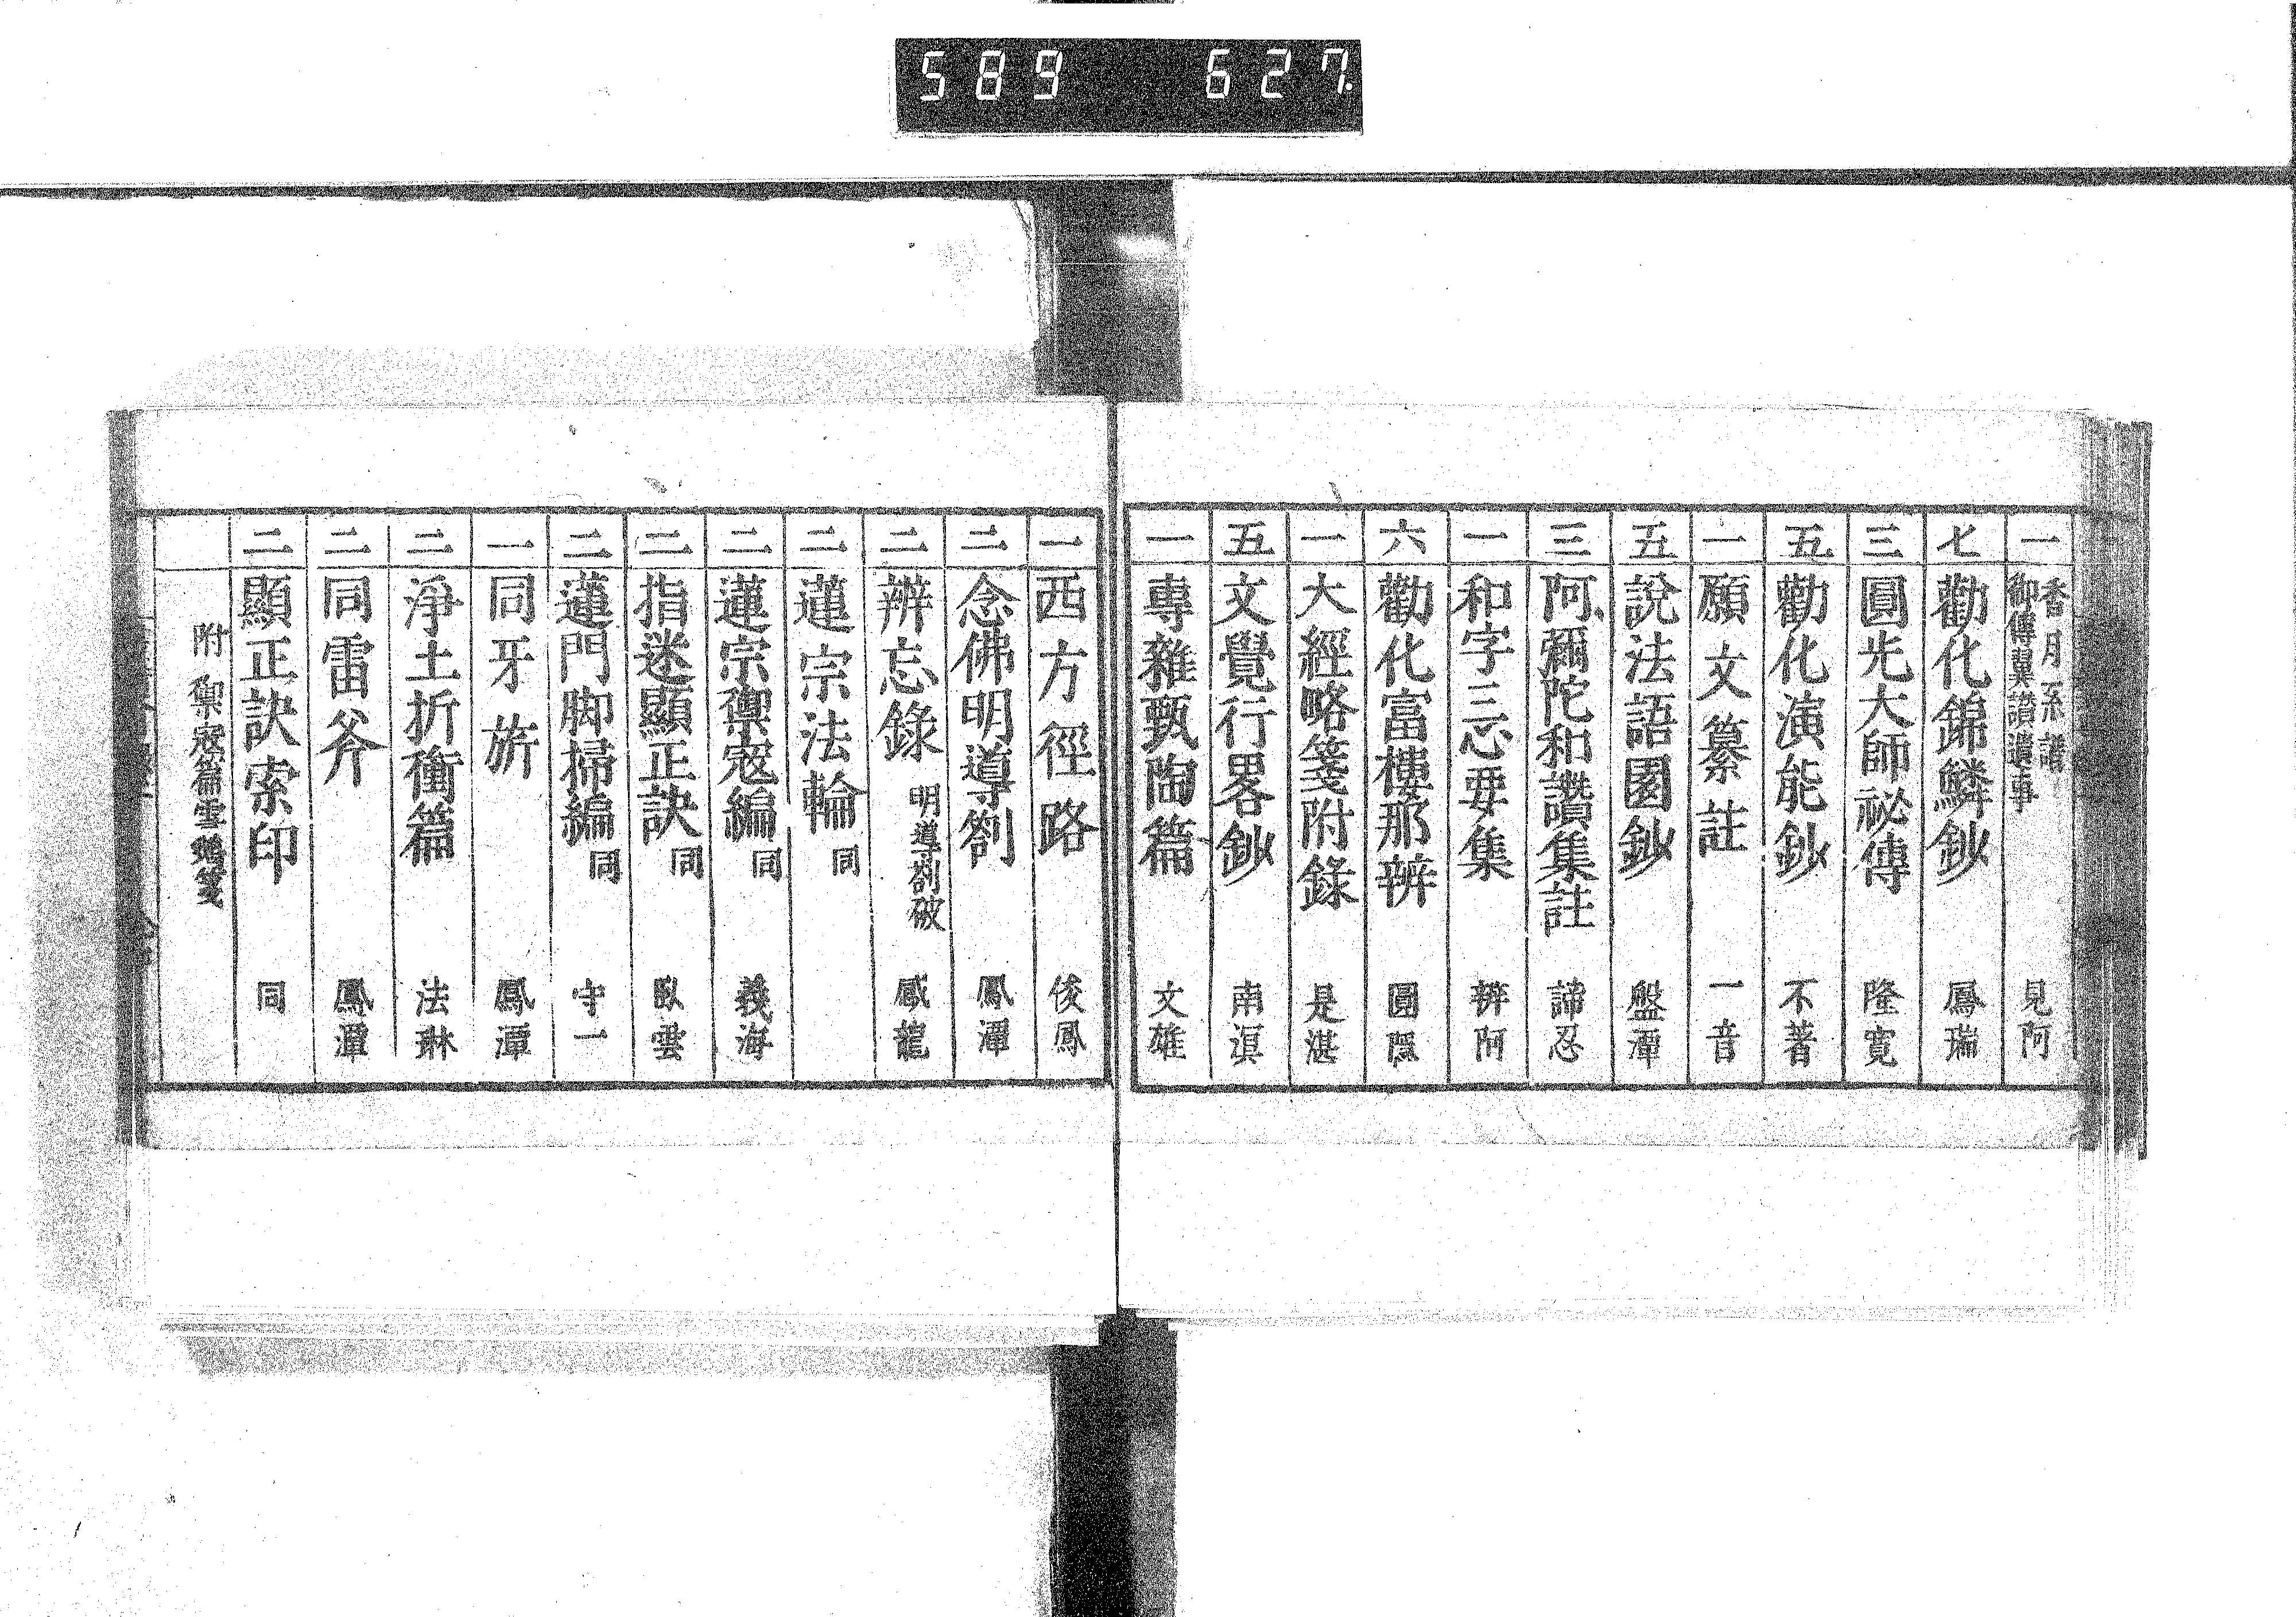 589 627.
一 香月系譜 御傳翼讚遺事 見阿
七 勸化錦鱗鈔 鳳瑞
三 圓光大師祕傳 隆寛
五 勸化演能鈔 不著
一 願文纂註 一音
五 說法語園鈔 盤潭
三 阿彌陀和讚集註 諦忍
一 和字三心要集 辨阿
六 勸化富樓那辨 圓隱
一 大經略箋附錄 是湛
五 文覺行畧鈔 南溟
一 專雜甄陶篇 文雄
一 西方徑路 俊鳳
二 念佛明導劄 鳳潭
二 辨忘錄 明導劄破 感龍
二 蓮宗法輪 同
二 蓮宗禦寇編 同 義海
二 指迷顯正訣 同 臥雲
二 蓮門脚掃編 同 守一
一 同牙旂 鳳潭
二 淨土折衝篇 法琳
二 同雷斧 鳳潭
二 顯正訣索印 同
附 禦寇篇雲鵺箋